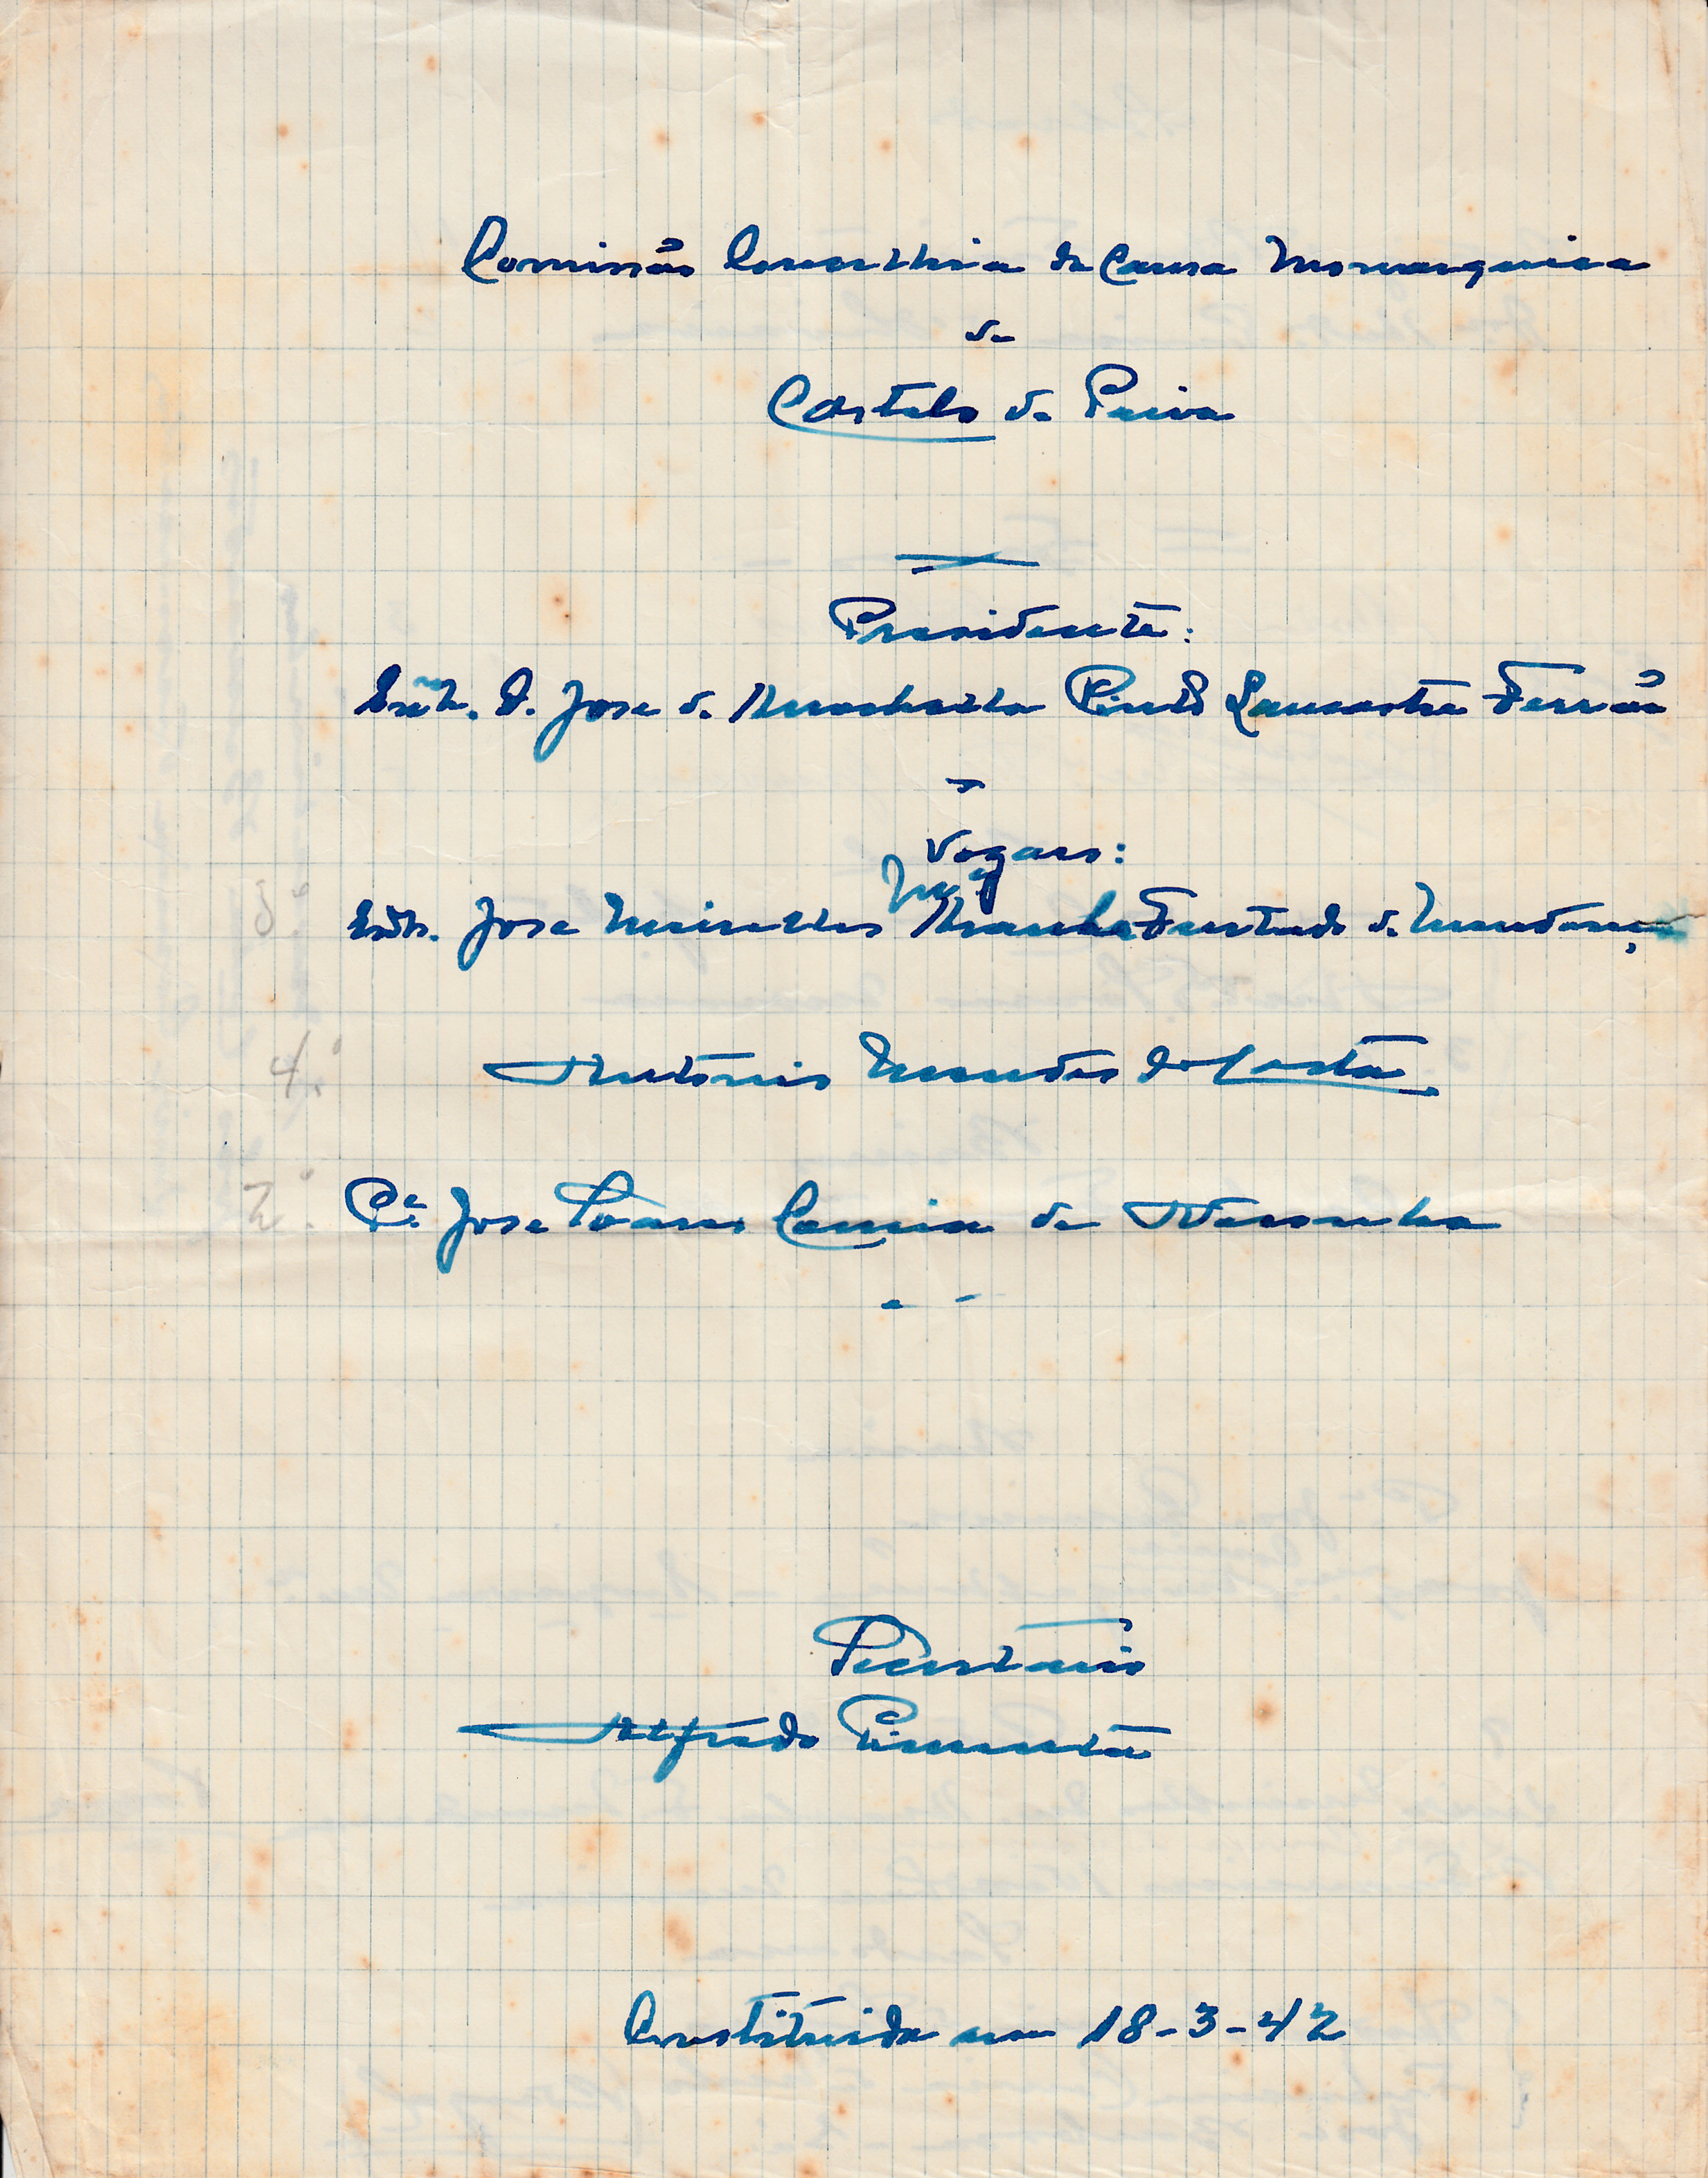 Comissão Concelhia da Causa Monarquica
de
Castelo de Paiva
Presidente:
D. Jose de Pinto Lancastre Ferrão
Vogais:
3.º Jose Meirelles Furtado de Mendonça
4.º António Mendes da Costa
2.º P.e Jose Soares Correia de Noronha
Secretário
Alfredo Pimenta
Constituida em 18-3-42